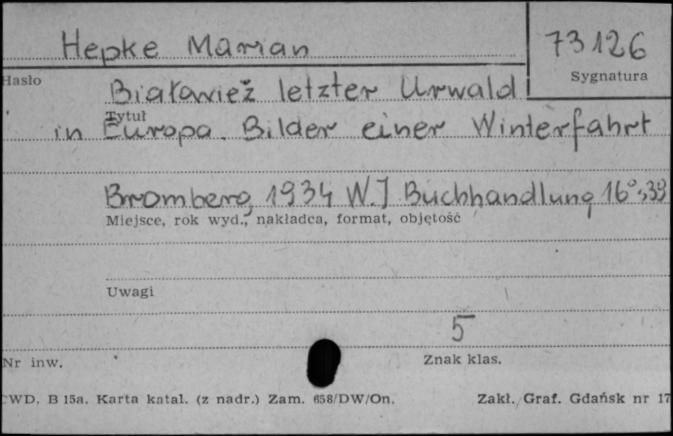 Hepke Marian
73126
Hasło
Sygnatura
Białowież letzter Urwald
Tytuł
in Europa. Bilder einer Winterfahrt
Bromberg, 1934 W.J Buchhandlung 16°s39
Miejsce, rok wyd., nakładca, format, objętość
Uwagi
5
Nr inw.
Znak klas.
CWD. B 15a. Karta katal. (z nadr.) Zam. 658/DW/On.
Zakł. Graf. Gdańsk nr 17